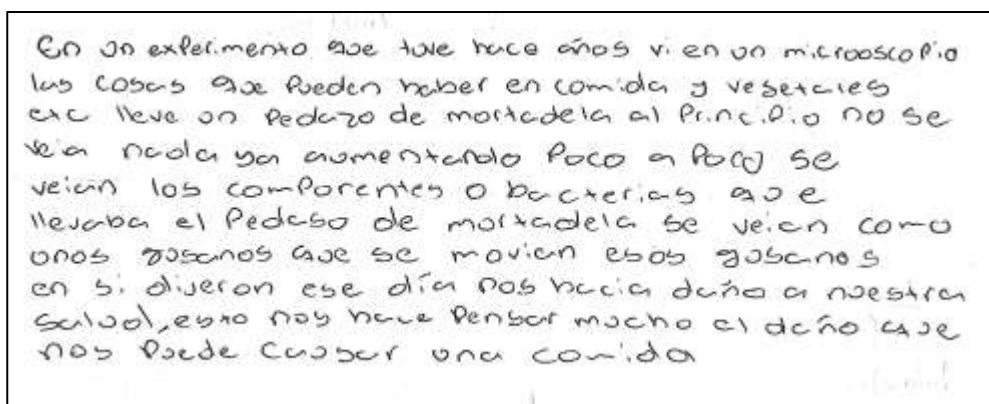 En un experimento que tuve hace años vi en un microoscopio
las cosas que pueden haber en comida y vegetales
etc lleve un pedazo de mortadela al principio no se
veia nada ya aumentando poco a poco se
veian los componentes o bacterias que
llevaba el pedaso de mortadela se veian como
unos gusanos que se movian esos gusanos
en si dijeron ese día nos hacia daño a nuestra
salud, esto nos hace pensar mucho el daño que
nos puede causar una comida